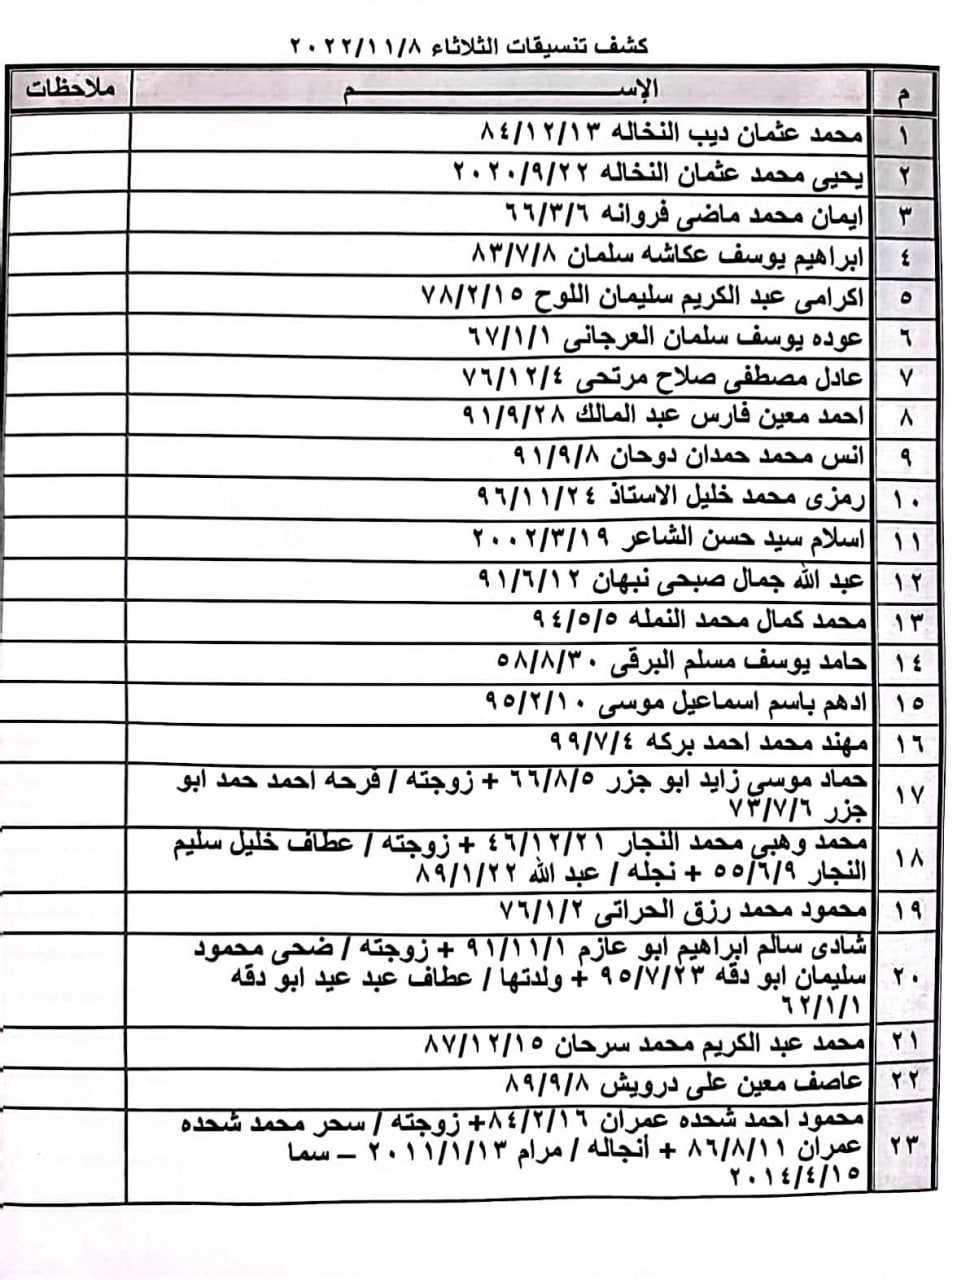 كشف تنسيقات الثلاثاء ٢٠٢٢/١١/٨
م الإســــــــــــم ملاحظات
١ محمد عثمان ديب النخاله ٨٤/١٢/١٣
٢ يحيى محمد عثمان النخاله ٢٠٢٠/٩/٢٢
٣ ايمان محمد ماضى فروانه ٦٦/٣/٦
٤ ابراهيم يوسف عكاشه سلمان ٨٣/٧/٨
٥ اكرامى عبد الكريم سليمان اللوح ٧٨/٢/١٥
٦ عوده يوسف سلمان العرجانى ٦٧/١/١
٧ عادل مصطفى صلاح مرتحى ٧٦/١٢/٤
٨ احمد معين فارس عبد المالك ٩١/٩/٢٨
٩ انس محمد حمدان دوحان ٩١/٩/٨
١٠ رمزى محمد خليل الاستاذ ٩٦/١١/٢٤
١١ اسلام سيد حسن الشاعر ٢٠٠٢/٣/١٩
١٢ عبد الله جمال صبحى نبهان ٩١/٦/١٢
١٣ محمد كمال محمد النمله ٩٤/٥/٥
١٤ حامد يوسف مسلم البرقى ٥٨/٨/٣٠
١٥ ادهم باسم اسماعيل موسى ٩٥/٢/١٠
١٦ مهند محمد احمد بركه ٩٩/٧/٤
١٧ حماد موسى زايد ابو جزر ٦٦/٨/٥ + زوجته / فرحه احمد حمد ابو
جزر ٧٣/٧/٦
١٨ محمد وهبى محمد النجار ٤٦/١٢/٢١ + زوجته / عطاف خليل سليم
النجار ٥٥/٦/٩ + نجله / عبد الله ٨٩/١/٢٢
١٩ محمود محمد رزق الحراتى ٧٦/١/٢
٢٠ شادى سالم ابراهيم ابو عازم ٩١/١١/١ + زوجته / ضحى محمود
سليمان ابو دقه ٩٥/٧/٢٣ + ولدتها / عطاف عبد عيد ابو دقه
٦٢/١/١
٢١ محمد عبد الكريم محمد سرحان ٨٧/١٢/١٥
٢٢ عاصف معين على درويش ٨٩/٩/٨
٢٣ محمود احمد شحده عمران ٨٤/٢/١٦+ زوجته / سحر محمد شحده
عمران ٨٦/٨/١١ + أنجاله / مرام ٢٠١١/١/١٣ – سما
٢٠١٤/٤/١٥